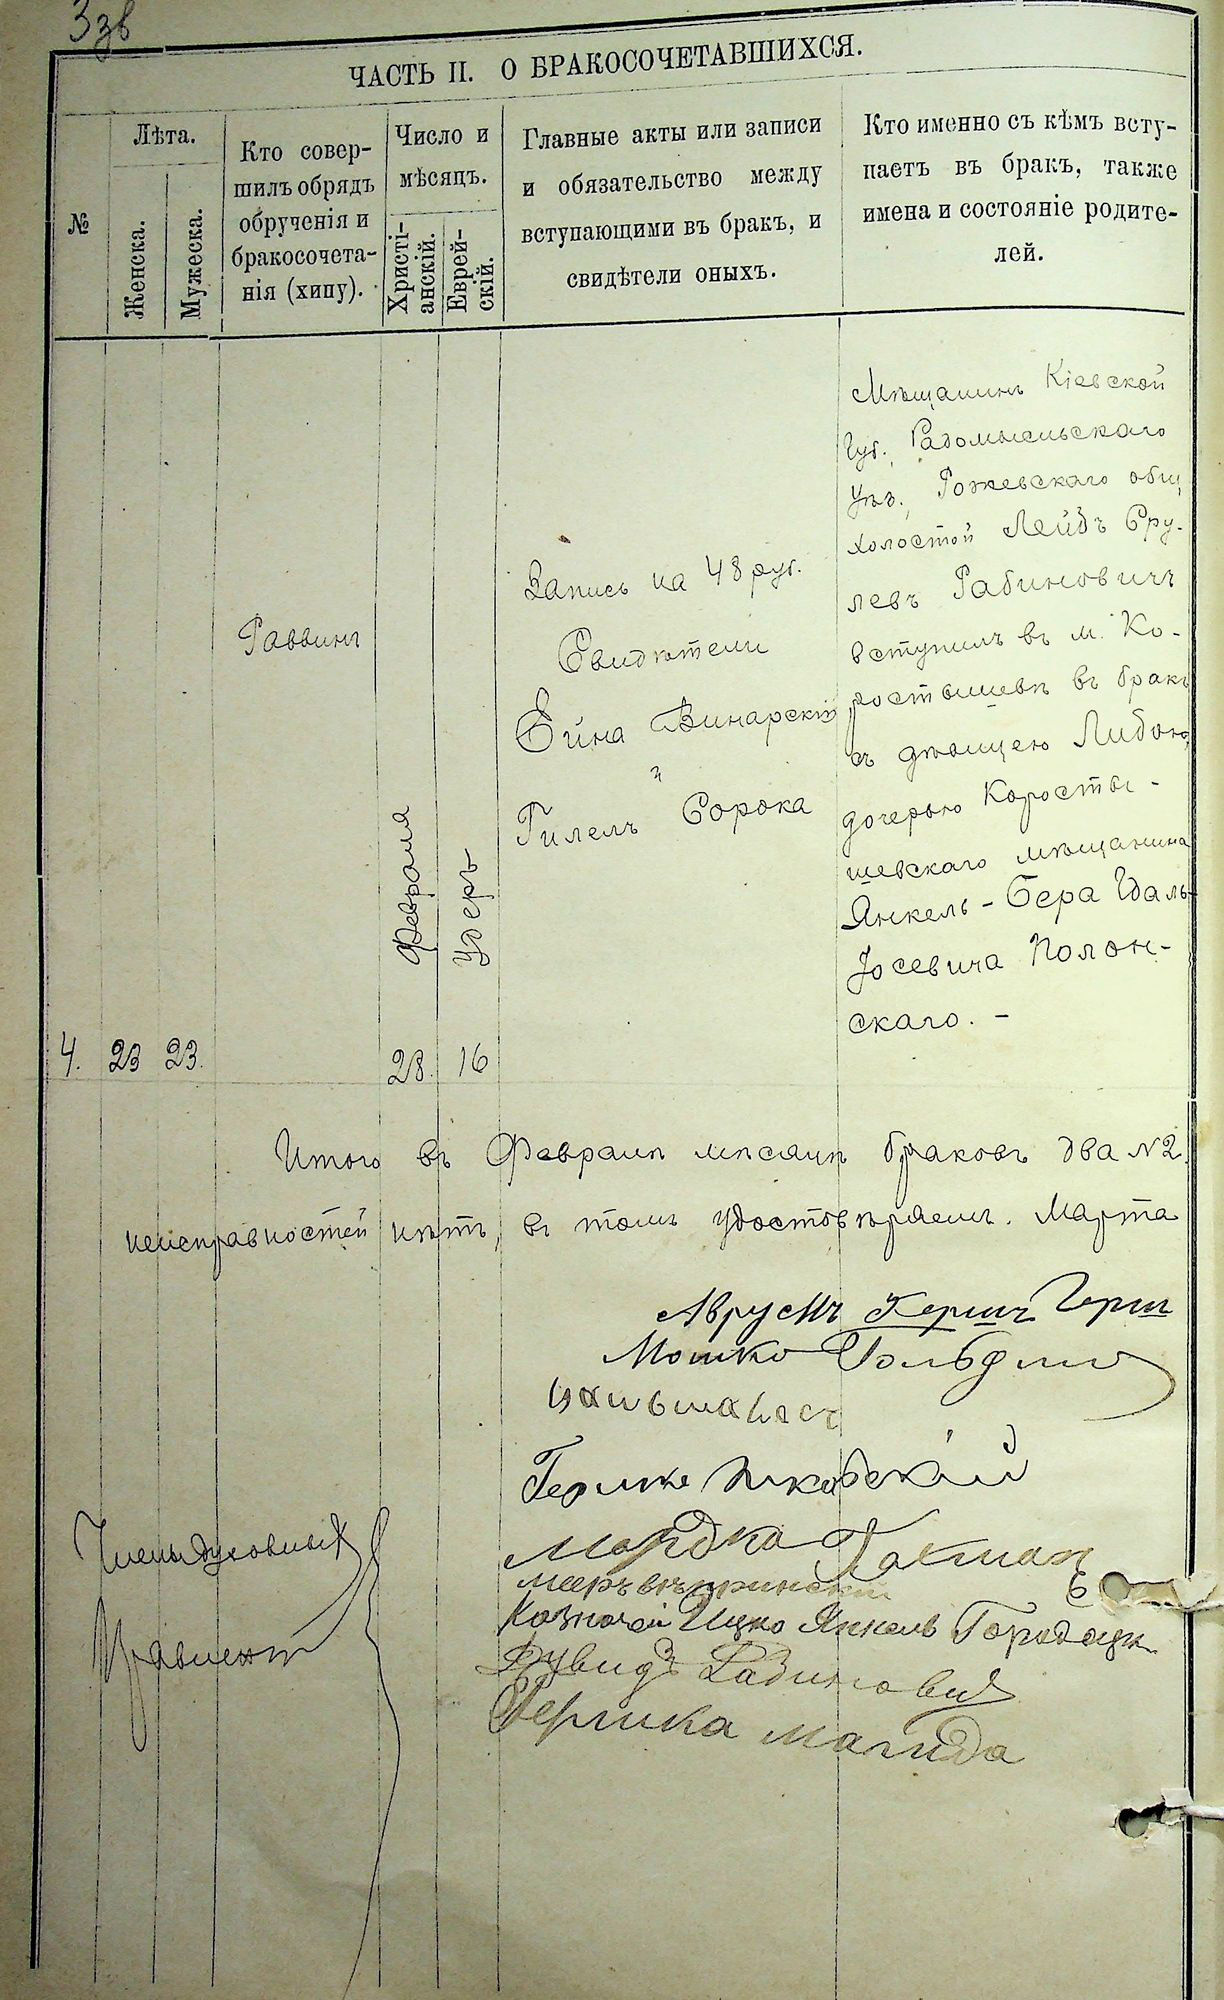 3зв
ЧАСТЬ II. О БРАКОСОЧЕТАВШИХСЯ.
№
Лѣта.
Женска.
Мужеска.
Кто совер-
шилъ обрядъ
обрученія и
бракосочета-
нія (хипу).
Число и
мѣсяцъ.
Христі-
анскій.
Еврей-
скій.
Главные акты или записи
и обязательство между
вступающими въ бракъ, и
свидѣтели оныхъ.
Кто именно съ кѣмъ всту-
паетъ въ бракъ, также
имена и состояніе родите-
лей.
4.
23
23.
Раввинъ
Февраля
28.
Адеръ
16
Запись на 48 руб.
Свидѣтели
Ейна Винарскій
и
Гилель Сорока
Мѣщанинъ Кіевской
губ., Радомысльскаго
уѣз., Рожевскаго общ
холостой Лейбъ Сру-
левъ Рабиновичъ
вступилъ въ м. Ко-
ростышевѣ въ бракъ
съ дѣвицею Либою,
дочерью Коросты-
шевскаго мѣщанина
Янкель-Бера Иваль-
Іосевича Полон-
скаго. -
Итого въ Февралѣ мѣсяцѣ браковъ два №2.
неисправностей нѣтъ, въ томъ удостовѣряемъ. Марта
Аврумъ Герш
Мошко Гольдин
Мордка Гахман
Казначей Ицко Янкель Городецк
Дувидъ Рабинович
Гершка Магида
Члены духовнаго
Правленія